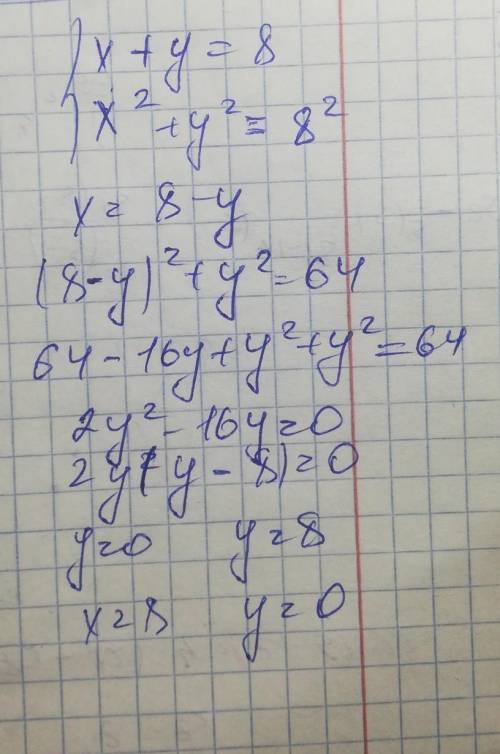 x + y = 8
x² + y² = 8²
x = 8 - y
(8 - y)² + y² = 64
64 - 16y + y² + y² = 64
2y² - 16y = 0
2y(y - 8) = 0
y = 0 y = 8
x = 8 y = 0